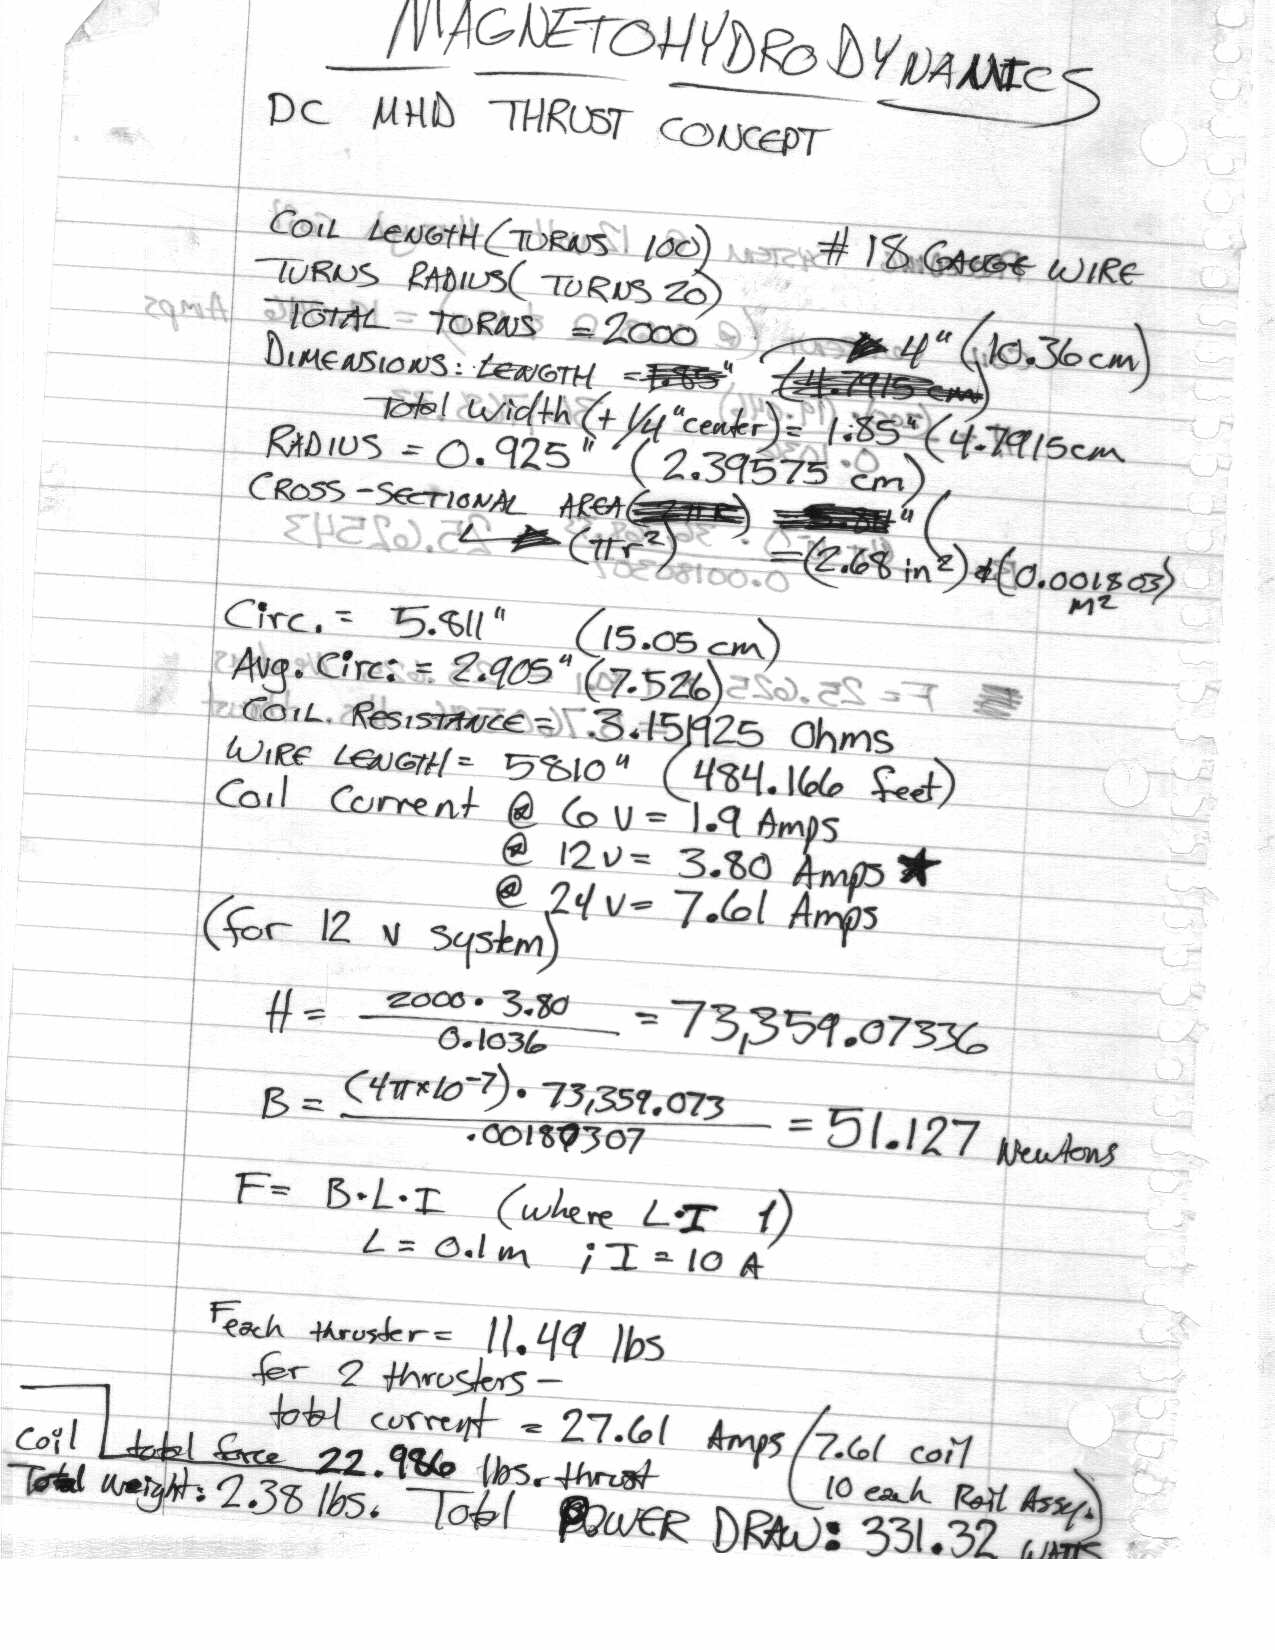 MAGNETOHYDRODYNAMICS
DC MHD THRUST CONCEPT
COIL LENGTH (TURNS 100) #18 GAUGE WIRE
TURNS RADIUS (TURNS 20)
TOTAL TURNS = 2000
4" (10.36 cm)
DIMENSIONS: LENGTH = 1.85" (4.7915 cm)
Total Width (+ 1/4" center) = 1.85" (4.7915 cm
RADIUS = 0.925" (2.39575 cm)
CROSS-SECTIONAL AREA (2πr) 5.811" (
(πr²) = (2.68 in²) & (0.001803) M²
Circ. = 5.811" (15.05 cm)
Avg. Circ: = 2.905" (7.526)
COIL RESISTANCE = 3.151925 Ohms
WIRE LENGTH = 5810" (484.166 feet)
Coil Current @ 6 V = 1.9 Amps
@ 12 V = 3.80 Amps ★
@ 24 V = 7.61 Amps
(for 12 V system)
H = 2000 · 3.80 / 0.1036 = 73,359.07336
B = (4π×10⁻⁷) · 73,359.073 / .00180307 = 51.127 Newtons
F = B·L·I (where L·I 1)
L = 0.1m ; I = 10 A
F each thruster = 11.49 lbs
for 2 thrusters –
total current = 27.61 Amps (7.61 coil
10 each Rail Assy.)
total force 22.986 lbs. thrust
Coil
Total weight: 2.38 lbs. Total POWER DRAW: 331.32 WATTS